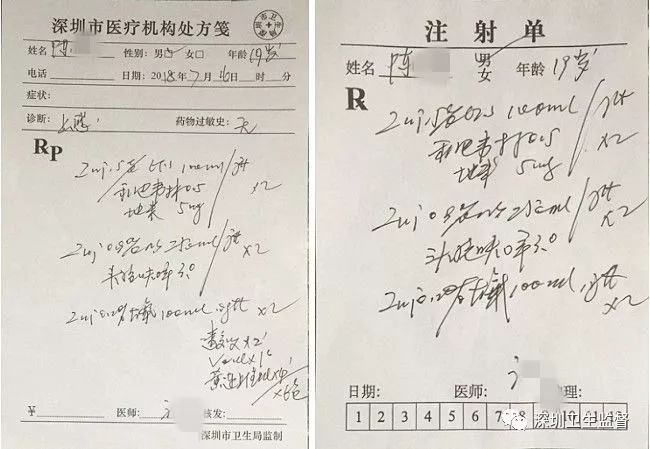 深圳市医疗机构处方笺
姓名 陈 性别: 男☑ 女□ 年龄 19岁
电话 日期: 2018年7月16日 时 分
症状:
诊断: 上感 药物过敏史: 无
Rp
Inj 5% G.S 100ml / gtt
利巴韦林 0.5 ×2
地米 5mg
Inj 0.9% NS 250ml / gtt ×2
头孢呋辛 3.0
Inj 0.2% 左氧 100ml gtt ×2
×2
黄连上清片
¥ 医师: 核发:
深圳市卫生局监制
注射单
姓名 陈 男 女 年龄 19岁
R
Inj 5% G.S 100ml / gtt
利巴韦林 0.5 ×2
地米 5mg
Inj 0.9% NS 250ml / gtt
头孢呋辛 3.0 ×2
Inj 0.2% 左氧 100ml gtt
×2
日期: 医师: 护理:
1 2 3 4 5 6 7 8 9 10 11 12
深圳卫生监督